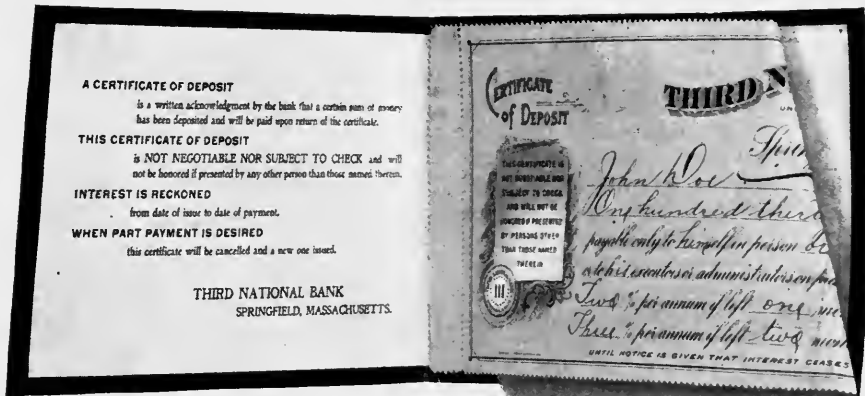 A CERTIFICATE OF DEPOSIT
is a written acknowledgment by the bank that a certain sum of money
has been deposited and will be paid upon return of the certificate.
THIS CERTIFICATE OF DEPOSIT
is NOT NEGOTIABLE NOR SUBJECT TO CHECK and will
not be honored if presented by any other person than those named therein.
INTEREST IS RECKONED
from date of issue to date of payment.
WHEN PART PAYMENT IS DESIRED
this certificate will be cancelled and a new one issued.
THIRD NATIONAL BANK
SPRINGFIELD, MASSACHUSETTS.
CERTIFICATE
of DEPOSIT
THIS CERTIFICATE IS
NOT NEGOTIABLE NOR
SUBJECT TO CHECK
AND WILL NOT BE
HONORED IF PRESENTED
BY PERSONS OTHER
THAN THOSE NAMED
THEREIN
III
THIRD N
UN
Sprin
John Doe
One hundred thir
payable only to himself in person or
to his executors or administrators on
Two % per annum if left one
Three % per annum if left two
UNTIL NOTICE IS GIVEN THAT INTEREST CEASES